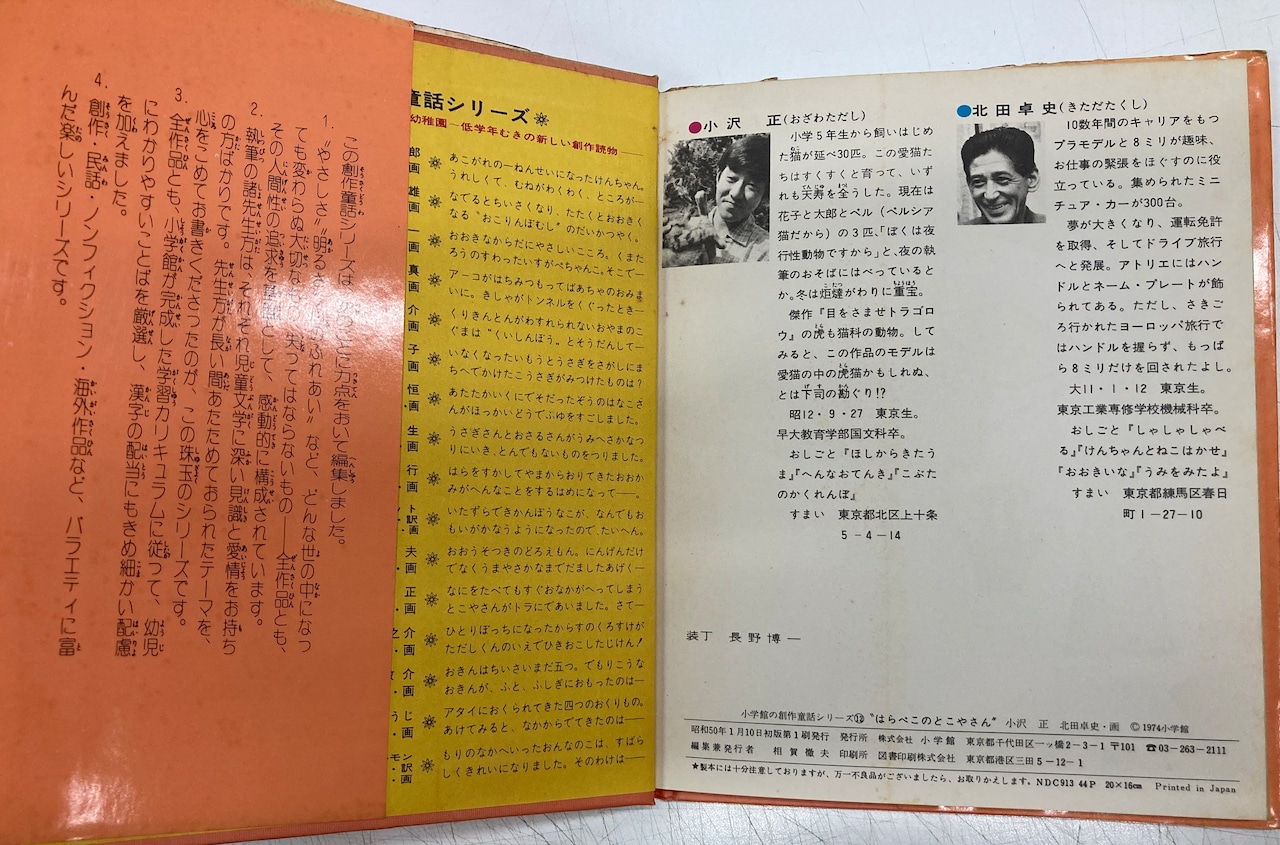 この創作童話シリーズは、次のことに力点をおいて編集しました。
1. “やさしさ”“明るさ”
ふれあい”など、どんな世の中になっ
ても変わらぬ大切な
失ってはならないもの――全作品とも、
その人間性の追求を基調として、感動的に構成されています。
2. 執筆の諸先生方は、それぞれ児童文学に深い見識と愛情をお持ち
の方ばかりです。先生方が長い間あたためておられたテーマを、
心をこめてお書きくださったのが、この珠玉のシリーズです。
3. 全作品とも、小学館が完成した学習カリキュラムに従って、幼児
にわかりやすいことばを厳選し、漢字の配当にもきめ細かい配慮
を加えました。
4. 創作・民話・ノンフィクション・海外作品など、バラエティに富
んだ楽しいシリーズです。
童話シリーズ
幼稚園―低学年むきの新しい創作読物――
郎
画
あこがれの一ねんせいになったけんちゃん。
うれしくて、むねがわくわく、ところが―
雄
画
なでるとちいさくなり、たたくとおおきく
なる“おこりんぼむし”のだいかつやく。
一
画
おおきなからだにやさしいこころ。くまた
ろうのすわったいすがぺちゃんこ。そこで―
真
画
アーコがはちみつもってばあちゃのおみま
いに。きしゃがトンネルをくぐったとき―
介
画
くりきんとんがわすれられないおやまのこ
ぐまは“くいしんぼう”とそうだんして―
子
画
いなくなったいもうとうさぎをさがしにま
ちへでかけたこうさぎがみつけたものは？
恒
画
あたたかいくにでそだったぞうのはなこさ
んがほっかいどうでふゆをすごしました。
生
画
うさぎさんとおさるさんがうみへさかなつ
りにいき、とんでもないものをつりました。
行
画
はらをすかしてやまからおりてきたおおか
みがへんなことをするはめになって―。
ト
訳
画
いたずらできかんぼうなこが、なんでもお
もいがかなうようになったので、たいへん。
夫
画
おおうそつきのどろえもん。にんげんだけ
でなくうまやさかなまでだましたあげく―
正
画
なにをたべてもすぐおなかがへってしまう
とこやさんがトラにであいました。さて―
介
画
ひとりぼっちになったからすのくろすけが
ただしくんのいえでひきおこしたじけん！
介
画
おきんはちいさいまだ五つ。でもりこうな
おきんが、ふと、ふしぎにおもったのは―
じ
画
アタイにおくられてきた四つのおくりもの。
あけてみると、なかからでてきたのは―
モン
訳
画
もりのなかへいったおんなのこは、すばら
しくきれいになりました。そのわけは―
●小沢 正(おざわただし)
小学5年生から飼いはじめ
た猫が延べ30匹。この愛猫た
ちはすくすくと育って、いず
れも天寿を全うした。現在は
花子と太郎とベル（ペルシア
猫だから）の3匹、「ぼくは夜
行性動物ですから」と、夜の執
筆のおそばにはべっていると
か。冬は炬燵がわりに重宝。
傑作『目をさませトラゴロ
ウ』の虎も猫科の動物。して
みると、この作品のモデルは
愛猫の中の虎猫かもしれぬ、
とは下司の勘ぐり!?
昭12・9・27 東京生。
早大教育学部国文科卒。
おしごと『ほしからきたう
ま』『へんなおてんき』『こぶた
のかくれんぼ』
すまい 東京都北区上十条
5-4-14
●北田卓史(きただたくし)
10数年間のキャリアをもつ
プラモデルと8ミリが趣味、
お仕事の緊張をほぐすのに役
立っている。集められたミニ
チュア・カーが300台。
夢が大きくなり、運転免許
を取得、そしてドライブ旅行
へと発展。アトリエにはハン
ドルとネーム・プレートが飾
られてある。ただし、さきご
ろ行かれたヨーロッパ旅行で
はハンドルを握らず、もっぱ
ら8ミリだけを回されたよし。
大11・1・12 東京生。
東京工業専修学校機械科卒。
おしごと『しゃしゃしゃべ
る』『けんちゃんとねこはかせ』
『おおきいな』『うみをみたよ』
すまい 東京都練馬区春日
町1-27-10
装丁 長野博一
小学館の創作童話シリーズ⑫“はらぺこのとこやさん” 小沢 正 北田卓史・画 Ⓒ1974小学館
昭和50年1月10日初版第1刷発行 発行所 株式会社 小学館 東京都千代田区一ッ橋2-3-1 〒101 ☎03-263-2111
編集兼発行者 相賀徹夫 印刷所 図書印刷株式会社 東京都港区三田5-12-1
★製本には十分注意しておりますが、万一不良品がございましたら、お取りかえします。NDC913 44P 20×16cm Printed in Japan